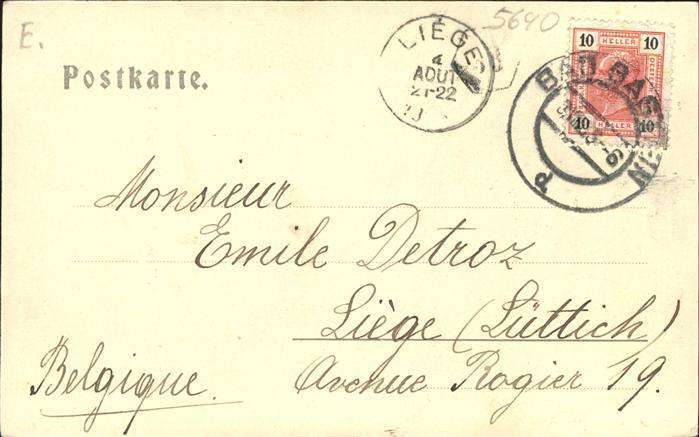 E.
5640
Postkarte.
LIÉGE
4
AOUT
21-22
10 HELLER 10
10 HELLER 10
BAD
Monsieur
Emile Detroz
Liège (Lüttich)
Belgique. Avenue Rogier 19.